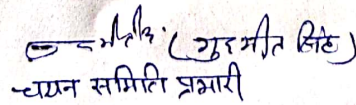 (गुरमीत सिंह)
चयन समिति प्रभारी